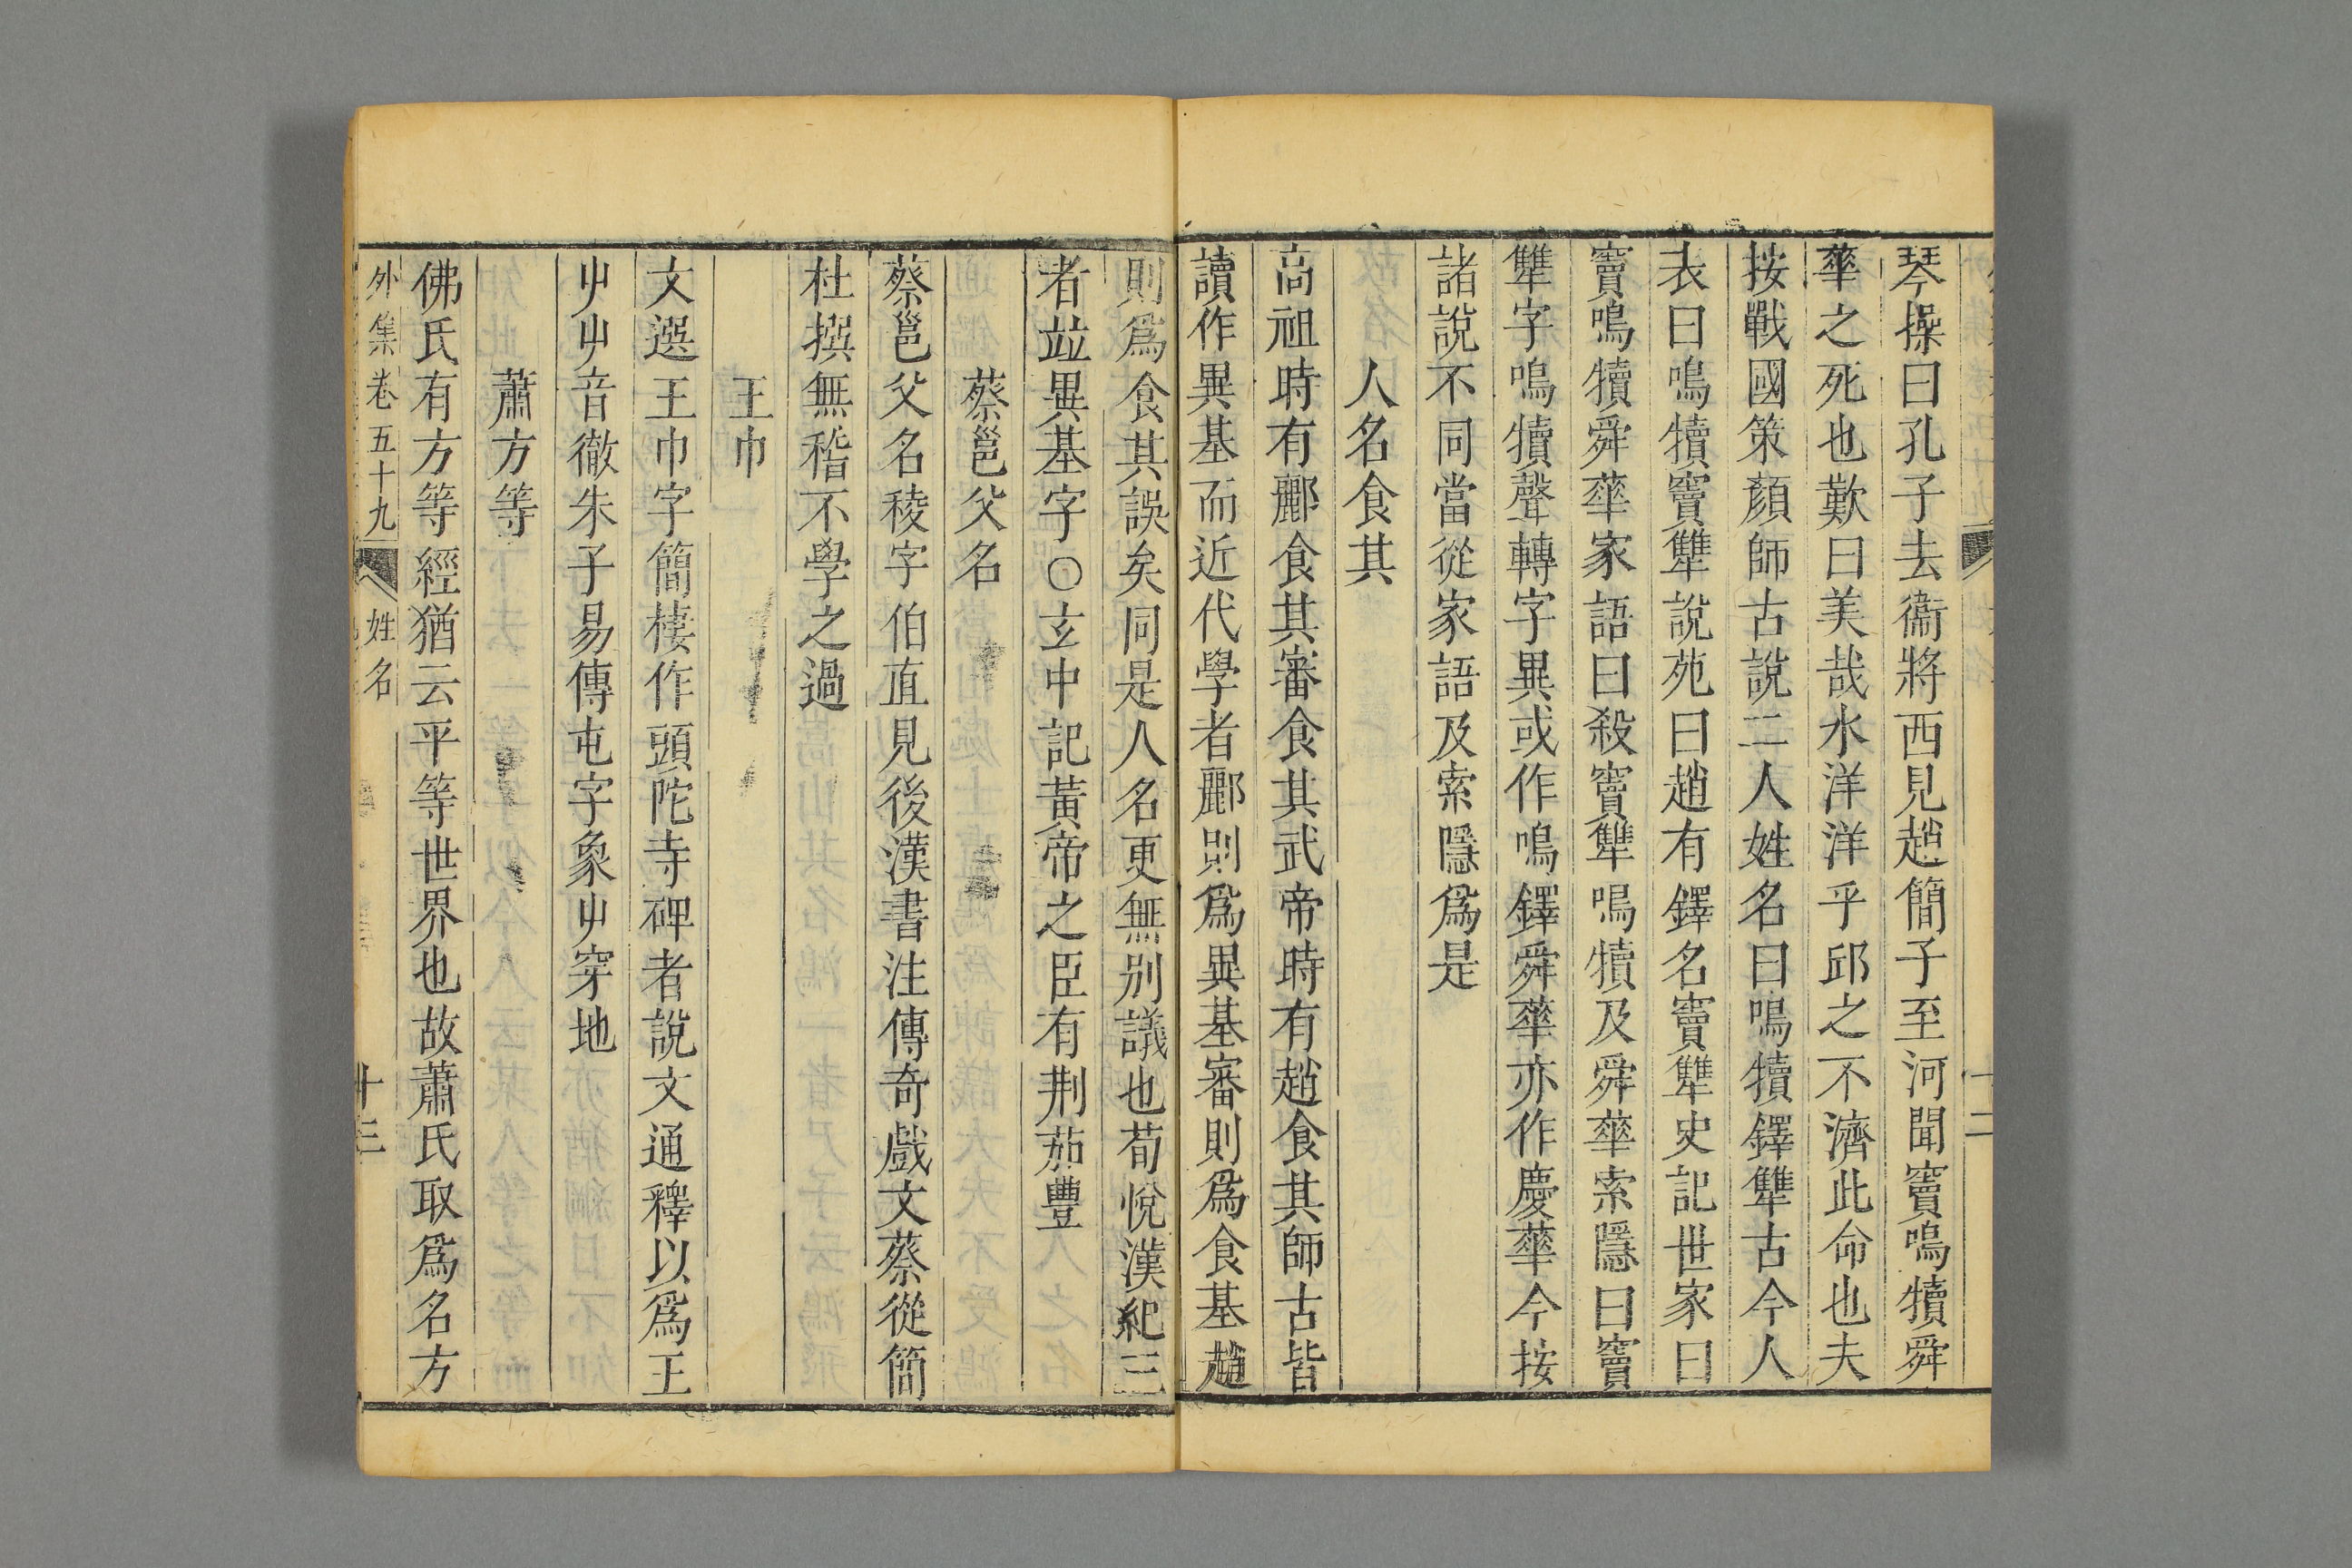 琴操曰孔子去衞將西見趙簡子至河聞竇鳴犢舜
華之死也歎曰美哉水洋洋乎邱之不濟此命也夫
按戰國策顏師古說二人姓名曰鳴犢鐸犨古今人
表曰鳴犢竇犨說苑曰趙有鐸名竇犨史記世家曰
竇鳴犢舜華家語曰殺竇犨鳴犢及舜華索隱曰竇
犨字鳴犢聲轉字異或作鳴鐸舜華亦作慶華今按
諸說不同當從家語及索隱爲是
人名食其
高祖時有酈食其審食其武帝時有趙食其師古皆
讀作異基而近代學者酈則爲異基審則爲食基趙
則爲食其誤矣同是人名更無别議也荀悅漢紀三
者竝異基字○玄中記黃帝之臣有荆茄豐
蔡邕父名
蔡邕父名稜字伯直見後漢書注傳奇戲文蔡從簡
杜撰無稽不學之過
王巾
文選王巾字簡棲作頭陀寺碑者說文通釋以爲王
屮屮音徹朱子易傳屯字象屮穿地
蕭方等
佛氏有方等經猶云平等世界也故蕭氏取爲名方
外集卷五十九
姓名
十三